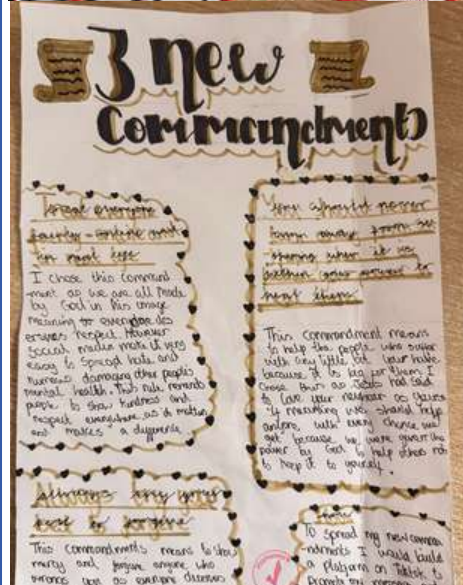 3 new
Commandments
Treat everyone
fairly - online and
in real life
I chose this command
-ment as we are all made
by God in his image
meaning to everyone des
erves respect. However
social media make it very
easy to spread hate and
damaging other peoples
mental health. This rule reminds
people to show kindness and
respect everywhere as it matters
and makes a difference
You should never
turn away from
when it is
within your power to
This commandment means
to help the people who suffer
with any little bit your have
because it is big for them. I
chose this as Jesus had said
to love your neighbour as yours
meaning we should help
anyone with every chance we
get because we were given the
power by God to help others not
to keep it to yourself.
Always try your
best to forgive
This commandments means to show
mercy and forgive anyone who
wrongs you as everyone deserves
How
To spread my new comman
-ndments I would build
a platform on TikTok to